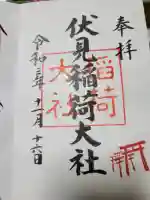 奉拝
伏見稲荷大社
稲荷大社
令和三年十一月十六日